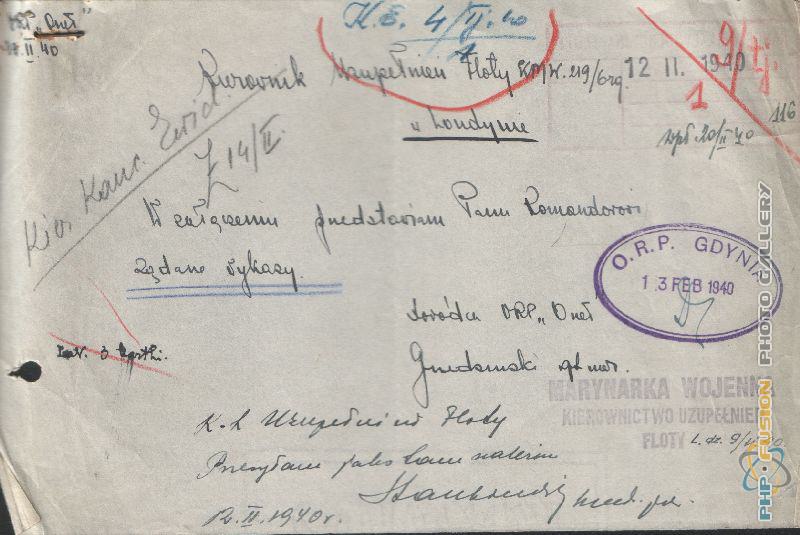 ORP „Orzeł"
II 40
K.E. 4/II.40
Kierownik Uzupełnień Floty KMW. 219/org.
12 II. 1940
9/II.
1
116
w Londynie
wpł 20/II 40
Kier Kanc. Ewid.
14/II.
W załączeniu przedstawiam Panu Komandorowi
żądane wykazy.
O.R.P. GDYNIA
13 FEB 1940
Dowódca ORP „Orzeł"
Zał. 3 kartki.
Grudziński kpt. mar.
MARYNARKA WOJENNA
KIEROWNICTWO UZUPEŁNIEŃ
FLOTY L. dz. 9/II 40
K-t Uzupełnień Floty
Przesyłam jako
12.II.1940r.
PHP-FUSION PHOTO GALLERY